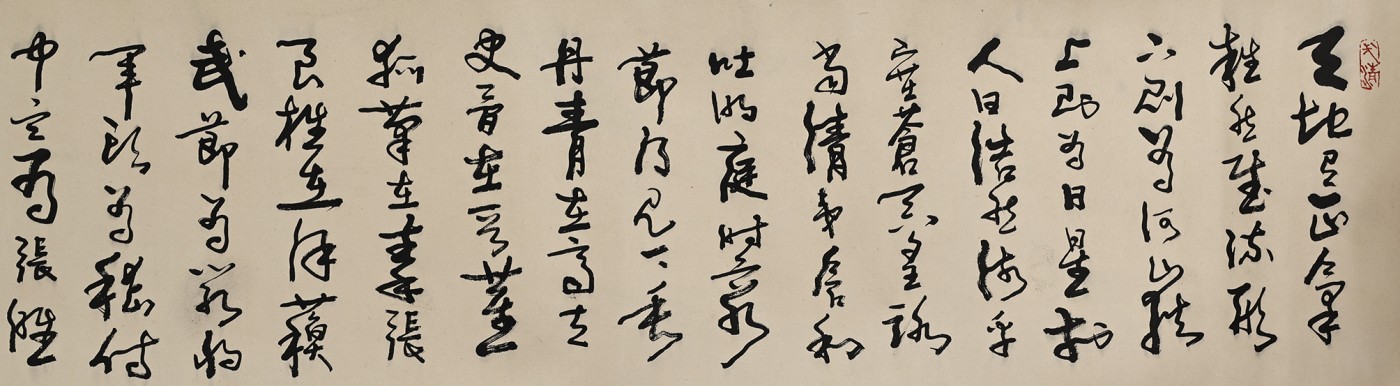 天地有正氣
雜然賦流形
下則為河嶽
上則為日星於
人曰浩然沛乎
塞蒼冥皇路
當清夷含和
吐明庭時窮
節乃見一一垂
丹青在齊太
史簡在晉董
狐筆在秦張
良椎在漢蘇
武節為嚴將
軍頭為嵇侍
中血為張睢